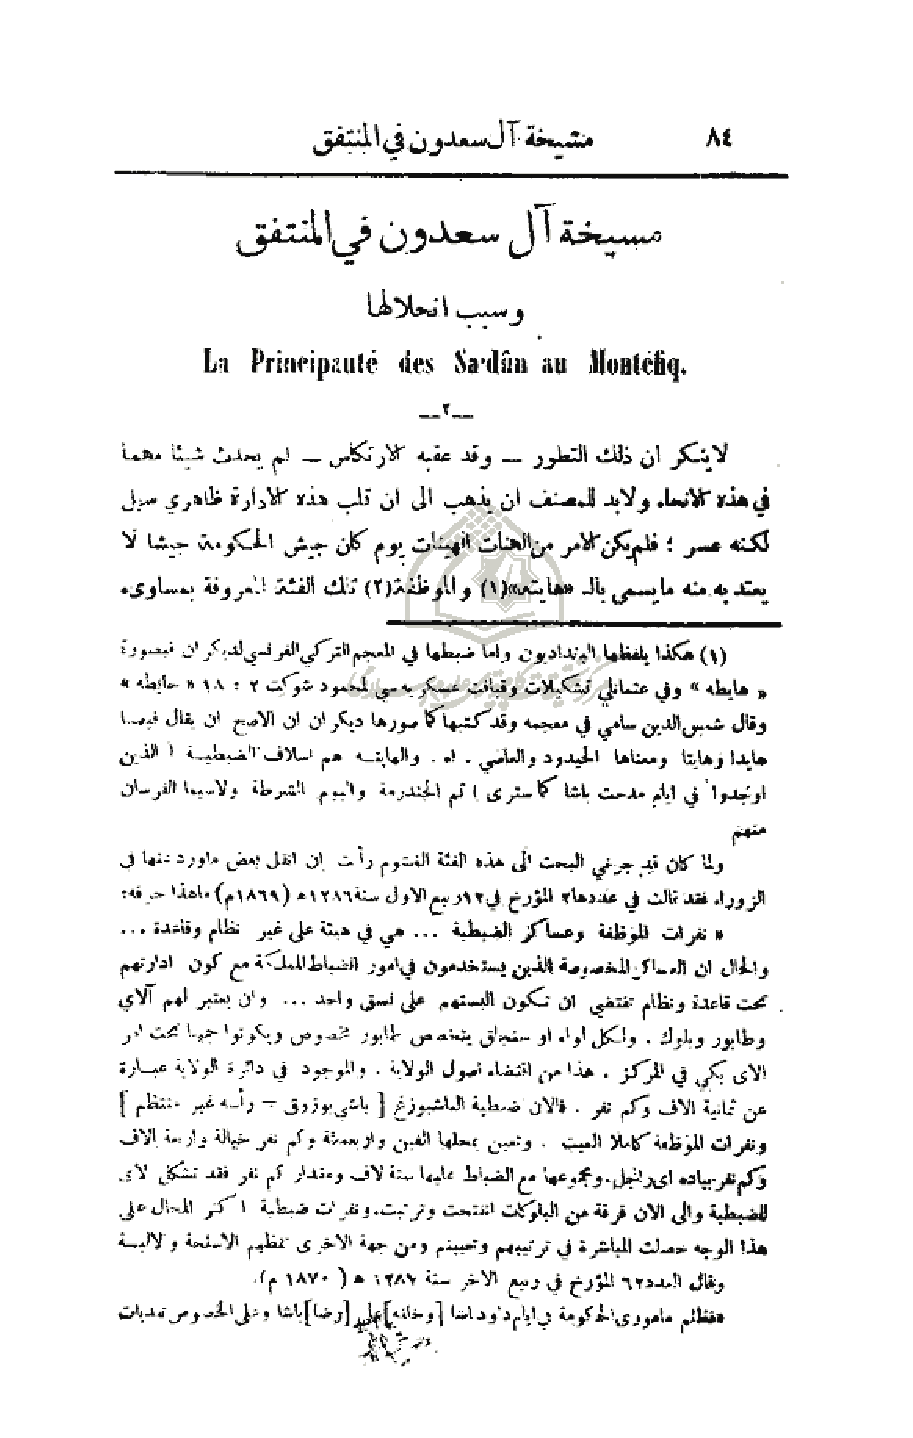 ٨٤ مشيخة آل سعدون في المنتفق
مسيخة آل سعدون في المنتفق
وسبب انحلالها
La Principauté des Sa'dûn au Montéfiq.
—٢—
لا ينكر ان ذلك التطور — وقد عقبه الارتكاس — لم يحدث شيئا مهما
في هذه الانحاء ولابد للمصنف ان يذهب الى ان قلب هذه الادارة ظاهري سهل
لكنه عسر ؛ فلم يكن الامر من الهنات الهينات يوم كان جيش الحكومة جيشا لا
يعتد به منه ما يسمى بالـ «هايته»(١) والموظفة(٢) تلك الفئة المعروفة بمساوىء
(١) هكذا يلفظها البغداديون واما ضبطها في المعجم التركي الفرنسي لديكران فبصورة
« هايطه » وفي عثمانلي تشكيلات وقيافت عسكريه سي لمحمود شوكت ٢ : ١٨ « حايطه »
وقال شمس الدين سامي في معجمه وقد كتبها كما صورها ديكران ان الاصح ان يقال فيها
هايدا وهايتا ومعناها الحيدود والعاصي . اه . والهايته هم اسلاف الضبطية ( الذين
اوجدوا في ايام مدحت باشا كما سترى ) ثم الجندرمة واليوم الشرطة ولاسيما الفرسان
منهم
ولما كان قد جرني البحث الى هذه الفئة الغشوم رأيت ان انقل بعض ماورد عنها في
الزوراء فقد قالت في عددها٢ المؤرخ في١٣ربيع الاول سنة١٢٨٦ه (١٨٦٩م) ماهذا حرفه:
« نفرات الموظفة وعساكر الضبطية ... هي في هيئة على غير نظام وقاعدة ...
والحال ان العساكر المخصوصة الذين يستخدمون في امور الضباط الملكية مع كون ادارتهم
تحت قاعدة ونظام تقتضي ان تكون البستهم على نسق واحد ... وان يعتبر لهم آلاي
وطابور وبلوك . ولكل لواء او سنجاق يتخصص طابور مخصوص ويكونوا جميعا تحت امر
الاى بكي في المركز . هذا من اقتضاء اصول الولاية . والموجود في دائرة الولاية عبارة
عن ثمانية الاف وكم نفر . فالان ضبطية الباشبوزغ [ باشي بوزوق = رأسه غير منتظم ]
ونفرات الموظفة كاملا الغيت . وتعين بمحلها الفين واربعمئة وكم نفر خيالة واربعة الاف
وكم نفر بياده اى راجل. ومجموعها مع الضباط عليها ستة الاف ومقدار كم نفر فقد تشكل الاى
للضبطية والى الان فرقة من البلوكات انفتحت وترتبت. ونفرات ضبطية اكثر المحال على
هذا الوجه حصلت المباشرة في ترتيبهم وتعيينهم ومن جهة الاخرى تنظيم الاسلحة والالبسة
وقال العدد٦٢ المؤرخ في ربيع الاخر سنة ١٢٨٧ ه ( ١٨٧٠ م).
«فظائم مامورى الحكومة في ايام داود باشا [وخلفه] علي [رضا] باشا وعلى الخصوص تعديات